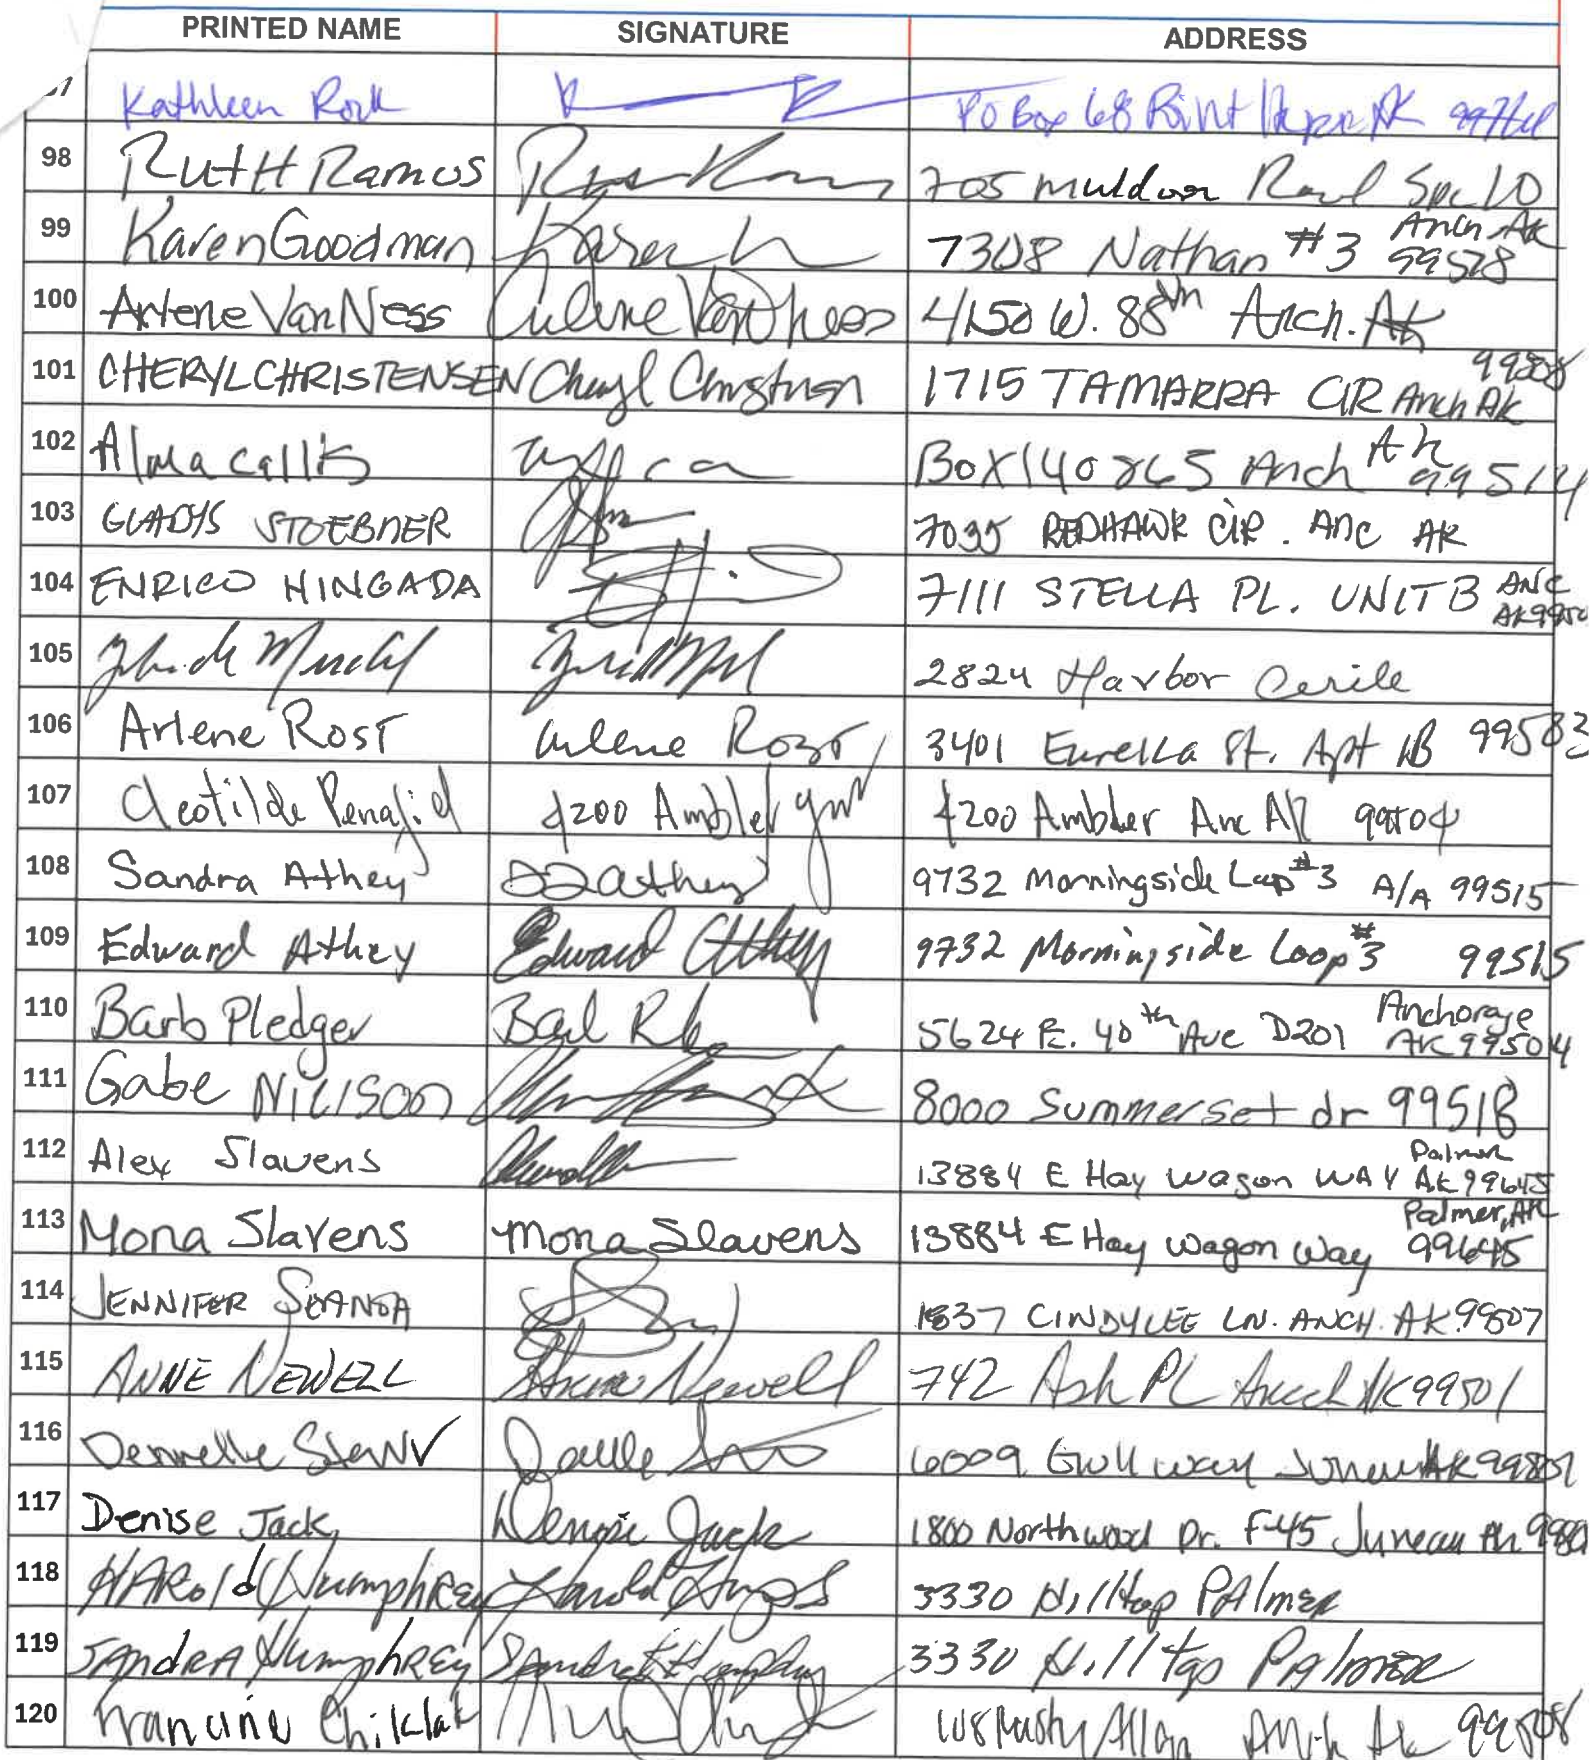 PRINTED NAME SIGNATURE ADDRESS
Kathleen Rock PO Box 68 Point AK
98 RutH Ramos 705 muldoon Road Spc 10
99 Karen Goodman Karen 7308 Nathan #3 Anch Ak
99518
100 Arlene Van Ness Arlene Van Ness 4150 W. 88th Anch. AK
101 CHERYL CHRISTENSEN Cheryl Christensen 1715 TAMARRA CIR Anch AK
102 Alma callis Box 140865 Anch Ak 99514
103 GLADYS STOEBNER 7035 REDHAWK CIR. ANC AK
104 ENRICO HINGADA 7111 STELLA PL. UNIT B ANC
105 2824 Harbor
106 Arlene Rost Arlene Rost 3401 Eureka St. Apt 1B 99503
107 Cleotilde Penafiel 4200 Ambler 4200 Ambler Anc AK 99504
108 Sandra Athey Athey 9732 Morningside Loop #3 A/A 99515
109 Edward Athey Edward Athey 9732 Morningside Loop #3 99515
110 Barb Pledger 5624 E. 40th Ave D201 Anchorage
AK 99504
111 Gabe 8000 Summerset dr 99518
112 Alex Slavens 13884 E Hay Wagon WAY Palmer
AK 99645
113 Mona Slavens Mona Slavens 13884 E Hay Wagon Way Palmer, AK
99645
114 JENNIFER 1837 CINDYLEE LN. ANCH. AK. 99507
115 ANNE NEWELL Anne Newell 742 Ash PL Anch AK 99501
116 6009 Gull way Juneau AK 99801
117 Denise Jack Denise Jack 1800 Northwood Dr. F-45 Juneau
118 HARold Humphrey Harold 3330 Hilltop PAlmer
119 SAndRA Humphrey Sandra Humphrey 3330 Hilltop PAlmer
120 Francine Chiklak Rusty Allan Anch Ak 99508